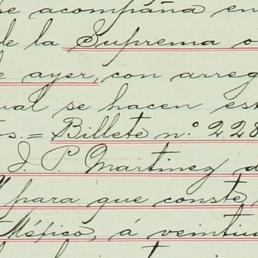 se acompaña en
de la Suprema o
de ayer, con arreg
ual se hacen est
os.= Billete nº 228
J. P. Martinez d
para que conste,
México, á veintiu